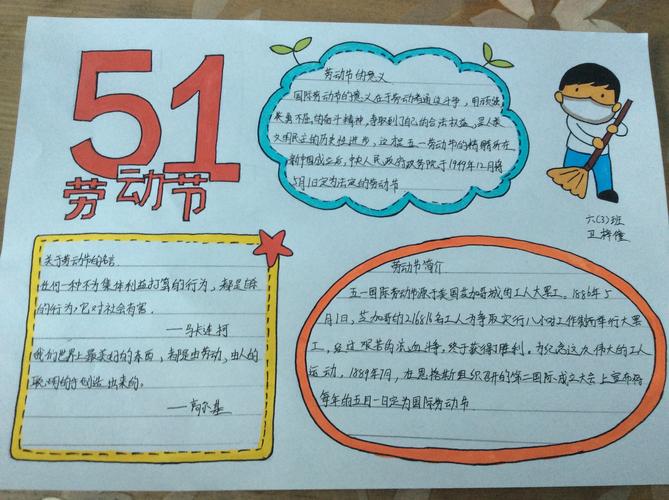 51
劳动节
劳动节的意义
国际劳动节的意义在于劳动者通过斗争,用顽强
英勇不屈的奋斗精神,争取到了自己的合法权益,是人类
文明民主的历史性进步,这才是五一劳动节的精髓所在
新中国成立后,中央人民政府政务院于1949年12月将
5月1日定为法定的劳动节
六(3)班
关于劳动节的名言
任何一种不为集体利益打算的行为,都是自杀
的行为,它对社会有害.
——马卡连柯
我们世界上最美好的东西,都是由劳动,由人的
聪明的手创造出来的.
——高尔基
劳动节简介
五一国际劳动节源于美国芝加哥城的工人大罢工。1886年5
月1日,芝加哥的216816名工人为争取实行八小时工作制而举行大罢
工,经过艰苦的流血斗争,终于获得了胜利。为纪念这次伟大的工人
运动,1889年7月,在恩格斯组织召开的第二国际成立大会上宣布将
每年的五月一日定为国际劳动节